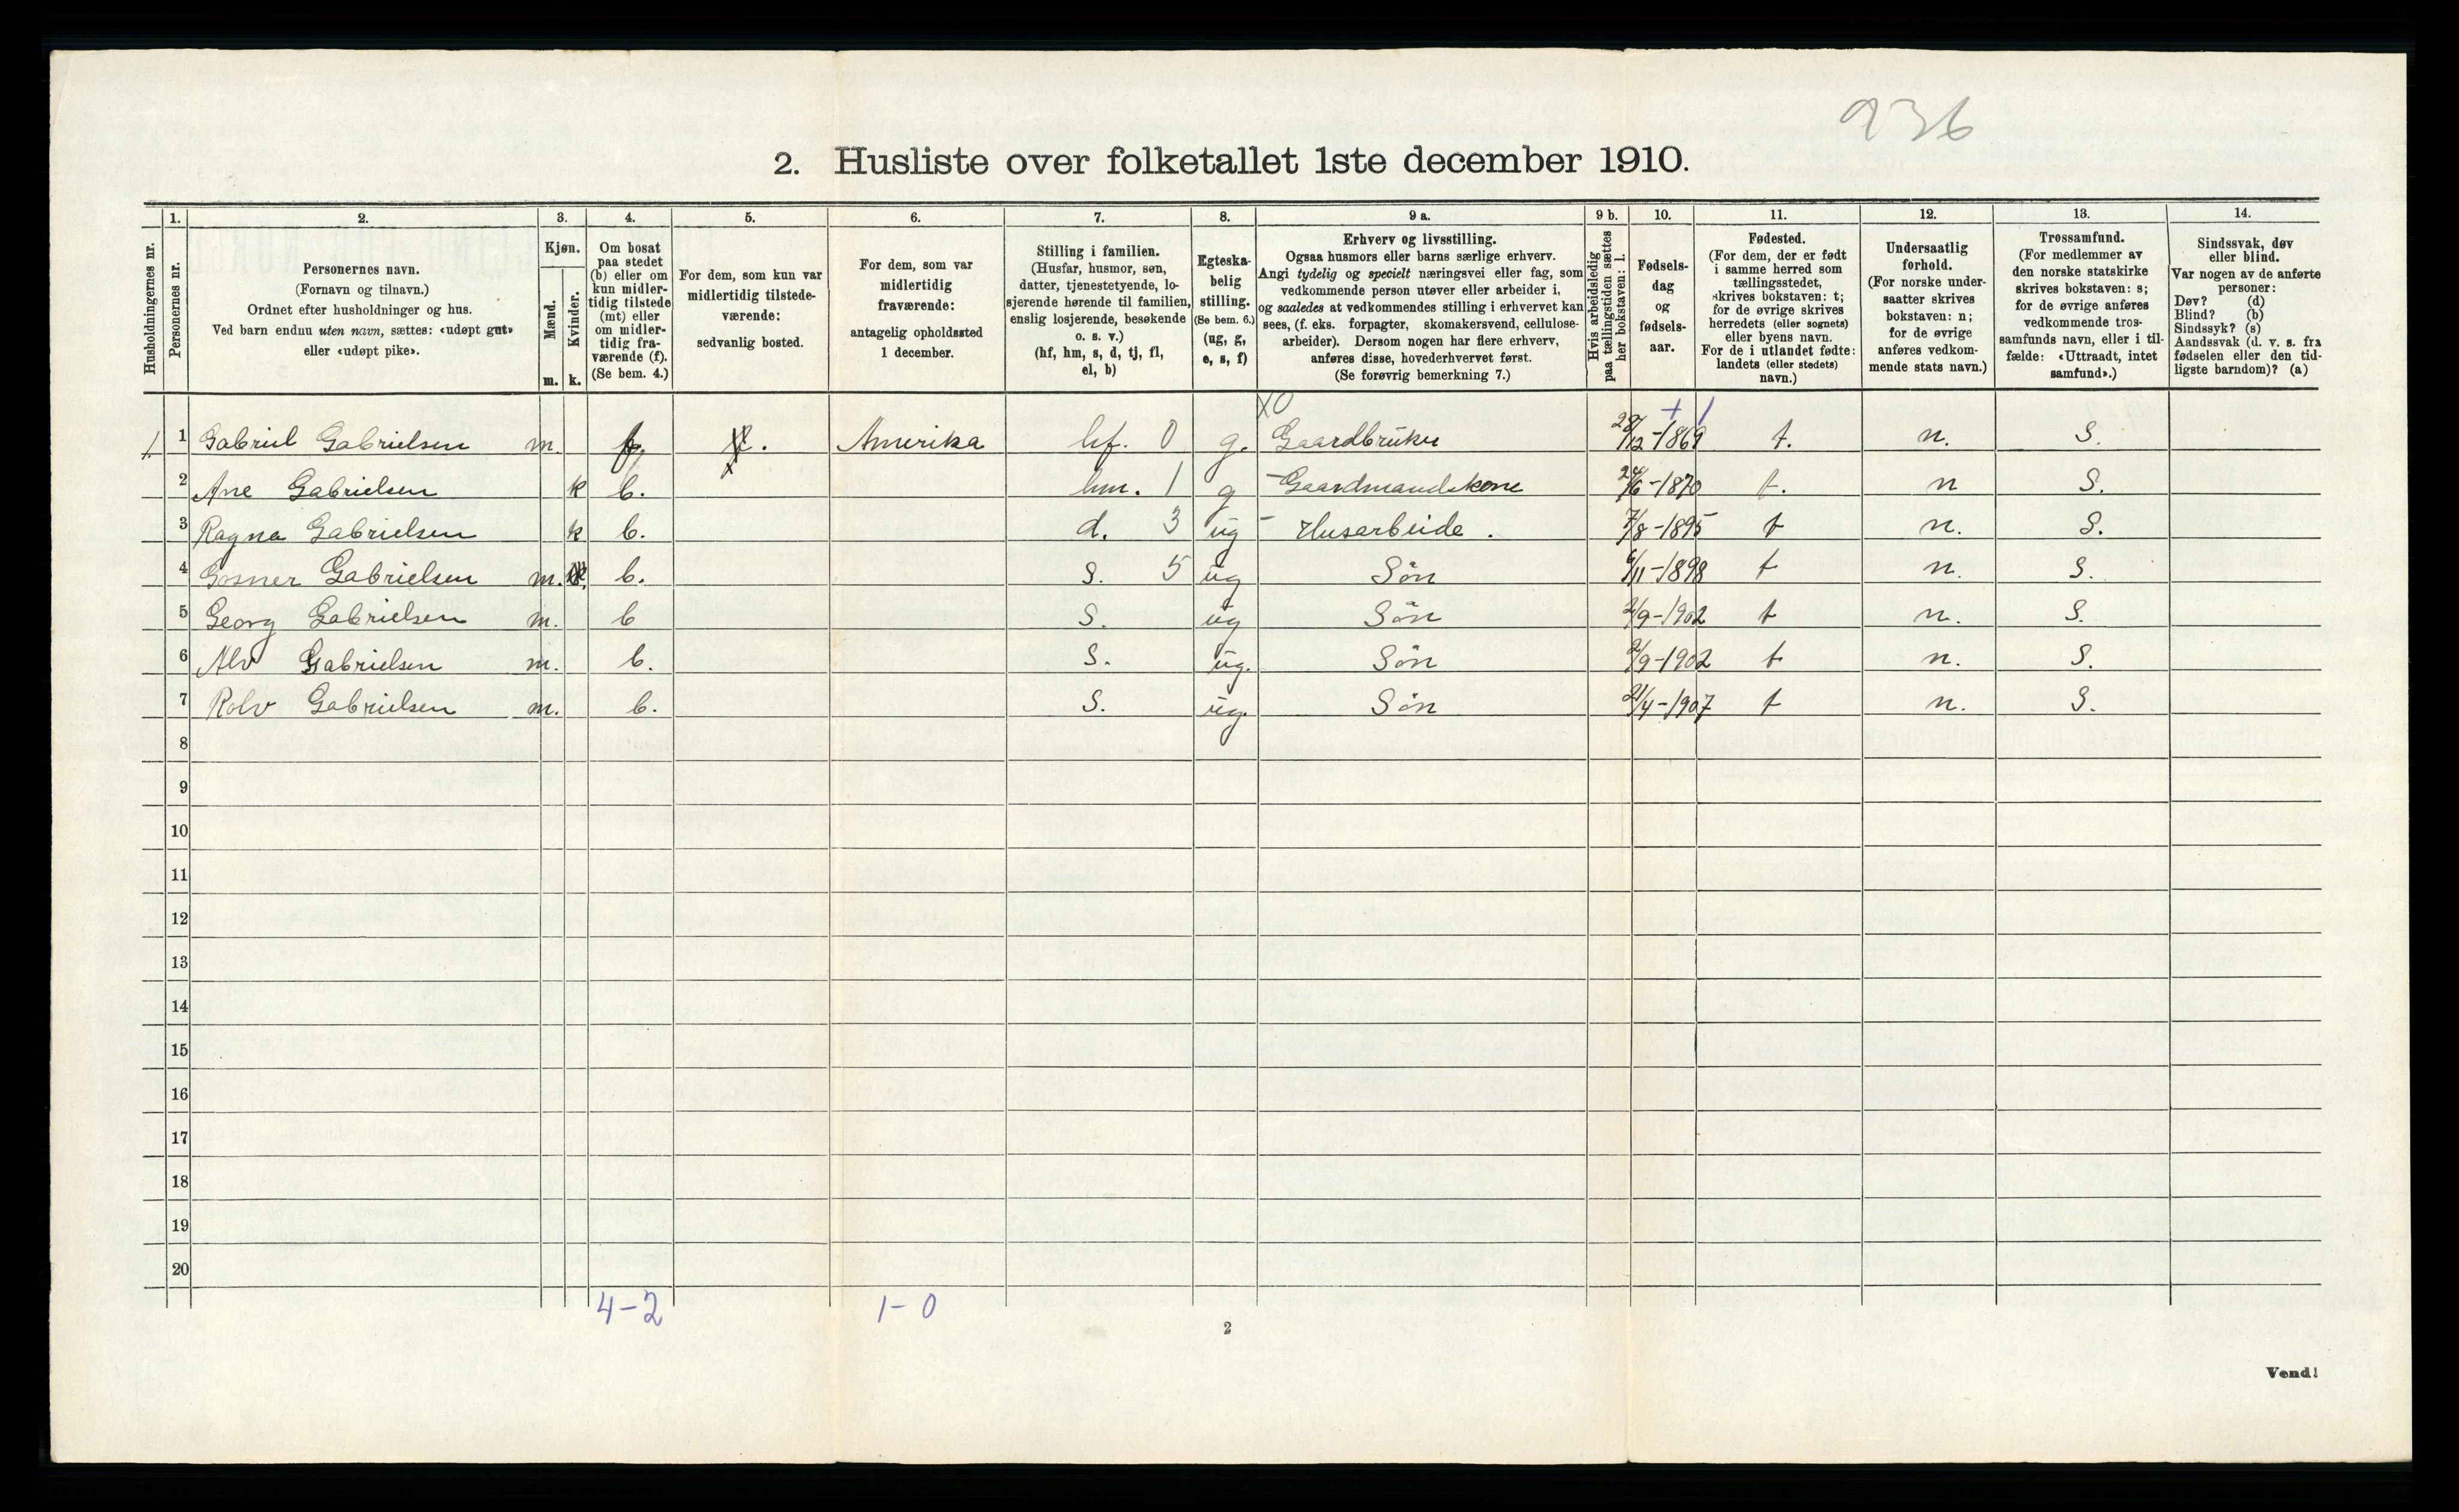 236
2. Husliste over folketallet 1ste december 1910.
Husholdningernes nr.
1. Personernes nr.
2. Personernes navn.
(Fornavn og tilnavn.)
Ordnet efter husholdninger og hus.
Ved barn endnu uten navn, sættes: «udøpt gut»
eller «udøpt pike».
3. Kjøn.
Mænd. m.
Kvinder. k.
4. Om bosat
paa stedet
(b) eller om
kun midler-
tidig tilstede
(mt) eller
om midler-
tidig fra-
værende (f).
(Se bem. 4.)
5. For dem, som kun var
midlertidig tilstede-
værende:
sedvanlig bosted.
6. For dem, som var
midlertidig
fraværende:
antagelig opholdssted
1 december.
7. Stilling i familien.
(Husfar, husmor, søn,
datter, tjenestetyende, lo-
sjerende hørende til familien,
enslig losjerende, besøkende
o. s. v.)
(hf, hm, s, d, tj, fl,
el, b)
8. Egteska-
belig
stilling.
(Se bem. 6.)
(ug, g,
e, s, f)
9 a. Erhverv og livsstilling.
Ogsaa husmors eller barns særlige erhverv.
Angi tydelig og specielt næringsvei eller fag, som
vedkommende person utøver eller arbeider i,
og saaledes at vedkommendes stilling i erhvervet kan
sees, (f. eks. forpagter, skomakersvend, cellulose-
arbeider). Dersom nogen har flere erhverv,
anføres disse, hovederhvervet først.
(Se forøvrig bemerkning 7.)
9 b. Hvis arbeidsledig
paa tællingstiden sættes
her bokstaven: l.
10. Fødsels-
dag
og
fødsels-
aar.
11. Fødested.
(For dem, der er født
i samme herred som
tællingsstedet,
skrives bokstaven: t;
for de øvrige skrives
herredets (eller sognets)
eller byens navn.
For de i utlandet fødte:
landets (eller stedets)
navn.)
12. Undersaatlig
forhold.
(For norske under-
saatter skrives
bokstaven: n;
for de øvrige
anføres vedkom-
mende stats navn.)
13. Trossamfund.
(For medlemmer av
den norske statskirke
skrives bokstaven: s;
for de øvrige anføres
vedkommende tros-
samfunds navn, eller i til-
fælde: «Uttraadt, intet
samfund».)
14. Sindssvak, døv
eller blind.
Var nogen av de anførte
personer:
Døv? (d)
Blind? (b)
Sindssyk? (s)
Aandssvak (d. v. s. fra
fødselen eller den tid-
ligste barndom)? (a)
X0 + 1
1 1 Gabriel Gabrielsen m. f. Amerika hf. 0 g. Gaardbruker 28/12-1869 t. n. S.
2 Ane Gabrielsen k b. hm. 1 g - Gaardmandskone 24/6-1870 t. n S.
3 Ragna Gabrielsen k b. d. 3 ug - Husarbeide. 7/8-1895 t n. S.
4 Gosner Gabrielsen m. b. S. 5 ug Sön 6/11-1898 t n. S.
5 Georg Gabrielsen m. b S. ug Sön 2/9-1902 t n. S.
6 Alv Gabrielsen m. b. S. ug. Sön 2/9-1902 t n. S.
7 Rolv Gabrielsen m. b. S. ug. Sön 21/4-1907 t n. S.
8
9
10
11
12
13
14
15
16
17
18
19
20
4-2 1-0
2
Vend!